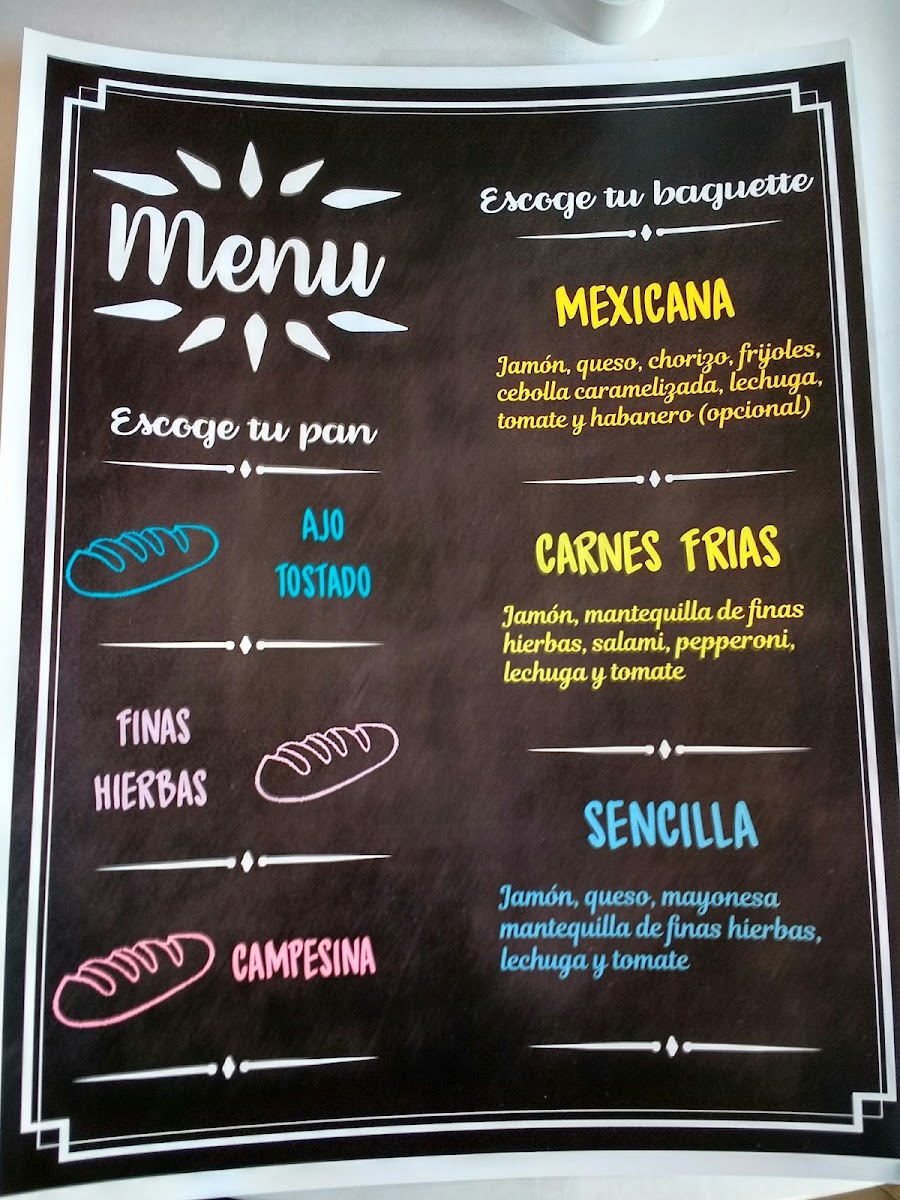 Menu
Escoge tu pan
AJO
TOSTADO
FINAS
HIERBAS
CAMPESINA
Escoge tu baguette
MEXICANA
Jamón, queso, chorizo, frijoles,
cebolla caramelizada, lechuga,
tomate y habanero (opcional)
CARNES FRIAS
Jamón, mantequilla de finas
hierbas, salami, pepperoni,
lechuga y tomate
SENCILLA
Jamón, queso, mayonesa
mantequilla de finas hierbas,
lechuga y tomate